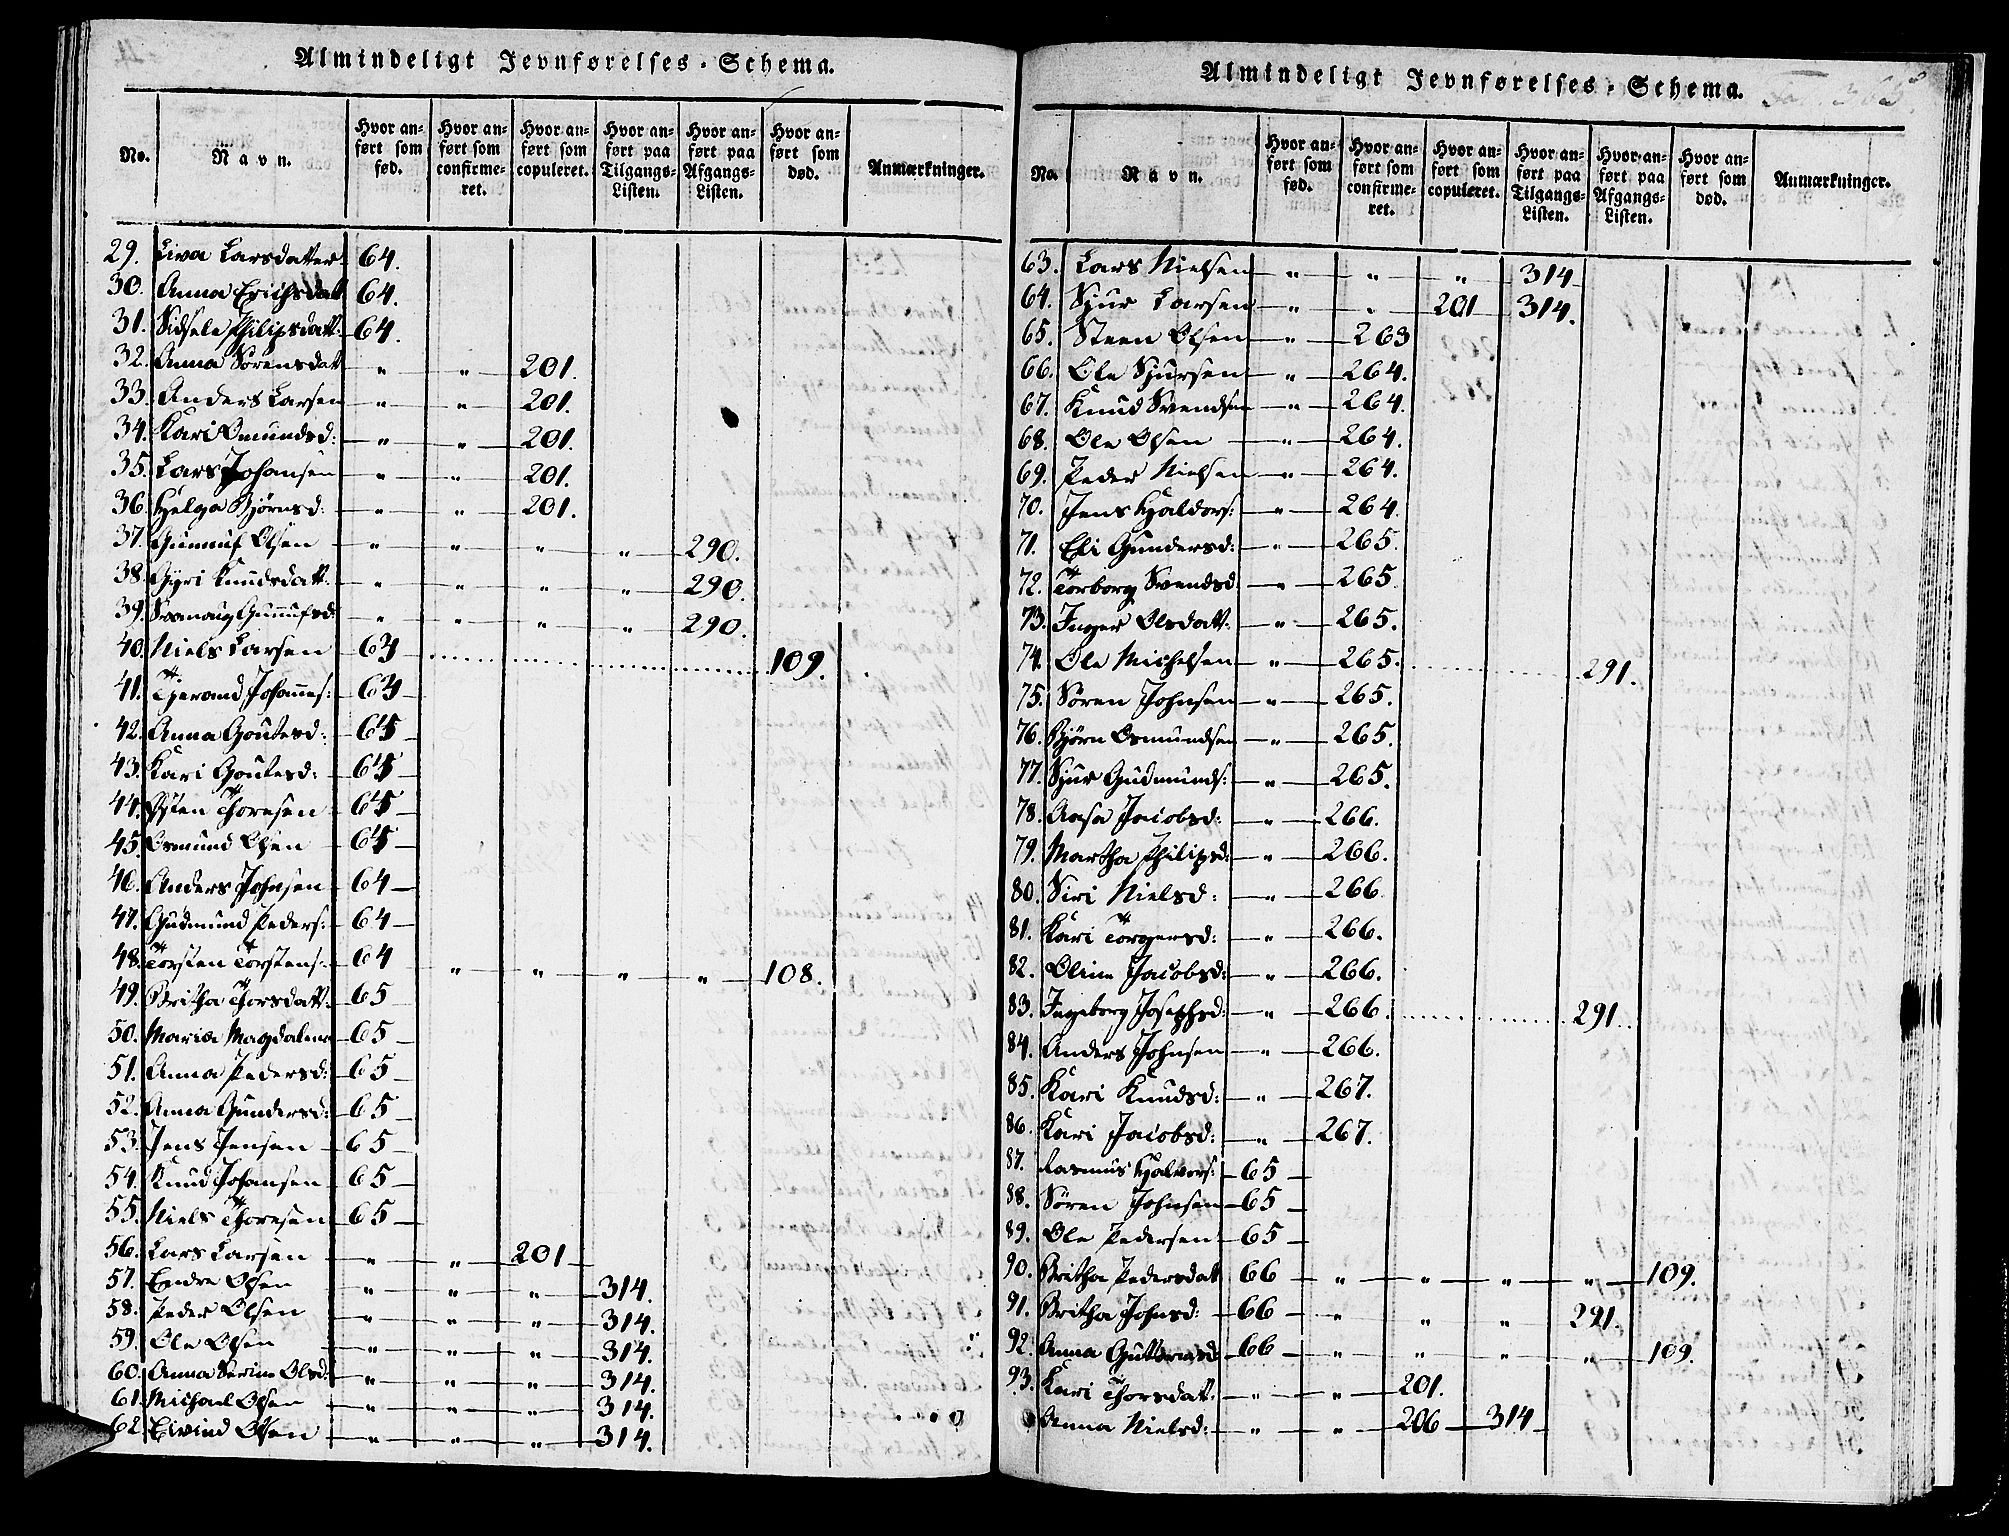 Almindeligt Jevnførelses-Schema.
No. Navn. Hvor anført som fød. Hvor anført som confirmeret. Hvor anført som copuleret. Hvor anført paa Tilgangs-Listen. Hvor anført paa Afgangs-Listen. Hvor anført som død. Anmærkninger.
29. Siva Larsdatter 64.
30. Anna Erichsdatt 64.
31. Sidsele Philipsdatt: 64.
32. Anna Sørensdat " " 201.
33. Anders Larsen " " 201.
34. Kari Omundsd: " " 201.
35. Lars Johansen " " 201.
36. Helga Bjørnsd: " " 201.
37. Gunnuf Olsen " " " " 290.
38. Gyri Knudsdatt. " " " " 290.
39. Gunnufsd: " " " " 290.
40. Niels Larsen 64 109.
41. Tjerand Johannes: 64
42. Anna Goutesd: 64
43. Kari Goutesd: 64
44. Østen Thoresen 64
45. Osmund Olsen 64
46. Anders Johnsen 64
47. Gudmund Peders: 64
48. Torsten Torstens: 64 " " " " 108.
49. Britha Thorsdatt. 65
50. Maria Magdalena 65
51. Anna Pedersd: 65
52. Anna Gundersd: 65
53. Jens Jensen 65
54. Knud Johansen 65
55. Niels Thoresen 65
56. Lars Larsen " " 201
57. Endre Olsen " " " 314.
58. Peder Olsen " " " 314.
59. Ole Olsen " " " 314.
60. Anna Serine Olsd: " " " 314.
61. Michael Olsen " " " 314.
62. Eivind Olsen " " " 314.
Almindeligt Jevnførelses-Schema.
No. Navn. Hvor anført som fød. Hvor anført som confirmeret. Hvor anført som copuleret. Hvor anført paa Tilgangs-Listen. Hvor anført paa Afgangs-Listen. Hvor anført som død. Anmærkninger.
63. Lars Nielsen " " " 314
64. Sjur Larsen " " 201 314.
65. Steen Olsen " 263
66. Ole Sjursen " 264.
67. Knud Svendsen " 264.
68. Ole Olsen " 264.
69. Peder Nielsen " 264.
70. Jens Hjaldors: " 264.
71. Eli Gundersd: " 265.
72. Torborg Svendsd " 265.
73. Inger Olsdatt: " 265.
74. Ole Michelsen " 265. 291.
75. Søren Johnsen " 265.
76. Bjørn Osmundsen " 265.
77. Sjur Gudmunds: " 265.
78. Aasa Jacobsd: " 266.
79. Martha Philipsd: " 266.
80. Siri Nielsd: " 266.
81. Kari Torgersd: " 266.
82. Oline Jacobsd: " 266.
83. Ingeborg Josephsd: " 266. 291.
84. Anders Johnsen " 266.
85. Kari Knudsd: " 267.
86. Kari Jacobsd: " 267.
87. Rasmus Hjalvors: 65
88. Søren Johnsen 65
89. Ole Pedersen 65
90. Britha Pedersdat 66 " " " " 109.
91. Britha Johnsd: 66 " " " 291.
92. Anna Guttormsd 66 " " " " 109.
93. Kari Thorsdatt. " " 201.
Anna Nielsd: " " 206 314